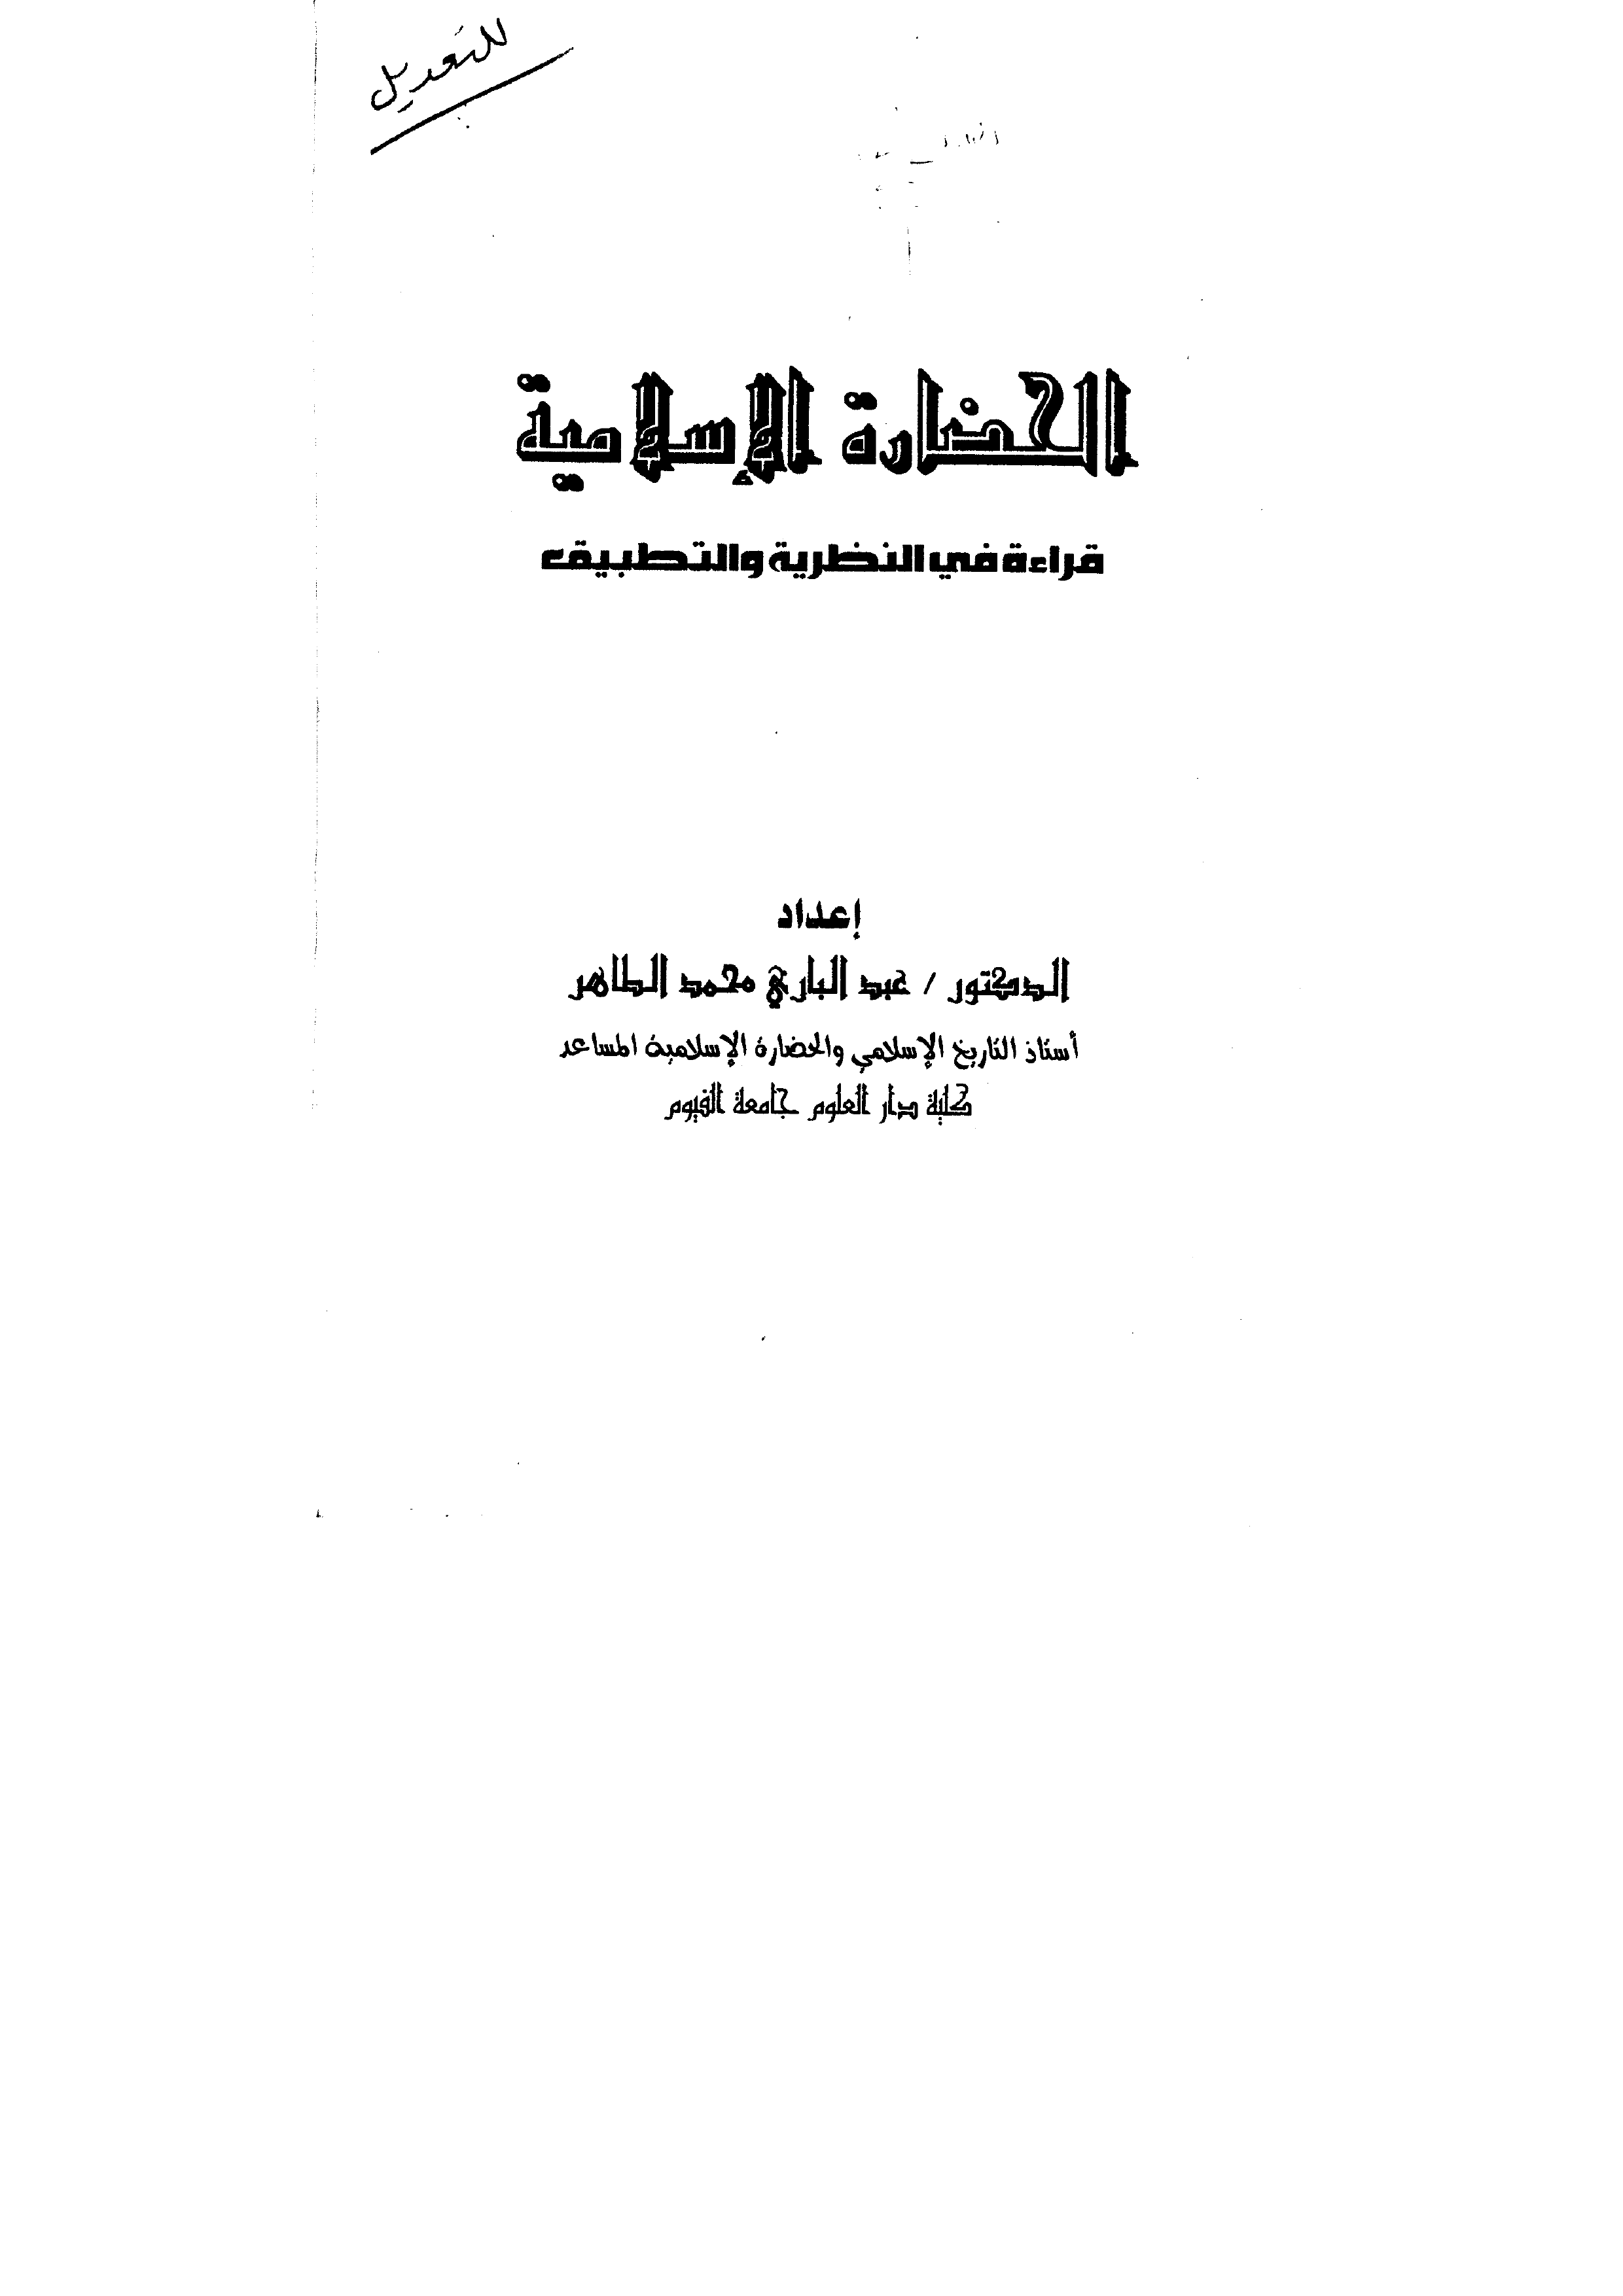 للتعديل
الحضارة الإسلامية
قراءة في النظرية والتطبيق
إعداد
الدكتور / عبد الباري محمد الطاهر
أستاذ التاريخ الإسلامي والحضارة الإسلامية المساعد
كلية دار العلوم جامعة الفيوم